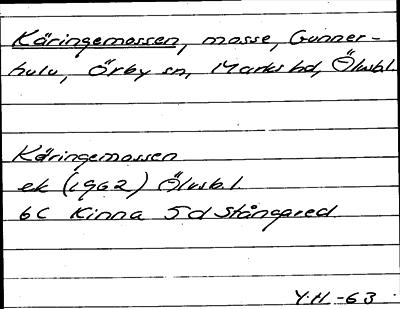 Käringemossen, mosse, Gunner-
hulu, Örby sn, Marks hd, Älvsb.l.
Käringemossen
ek (1962) Älvsb.l.
6C Kinna 5d Stångared
Y.H. -63